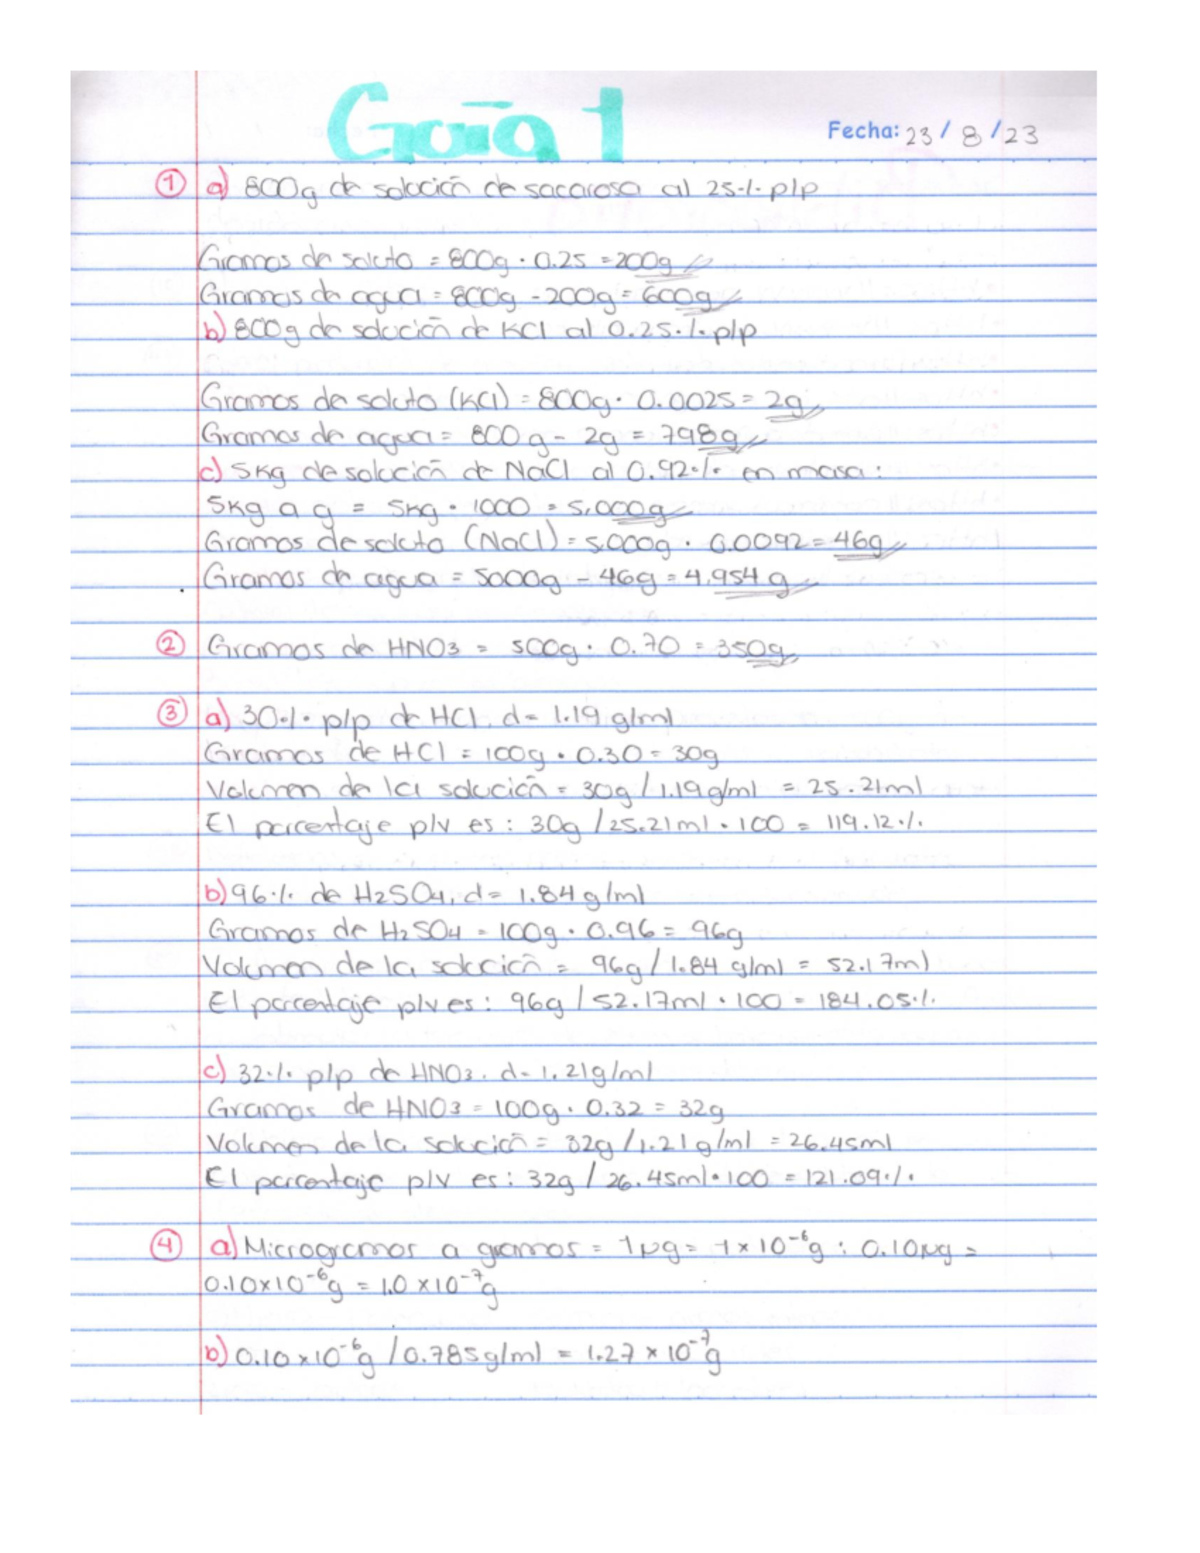 Guía 1
Fecha: 23 / 8 / 23
① a) 800g de solución de sacarosa al 25·/· p/p
Gramos de soluto = 800g · 0.25 = 200g
Gramos de agua = 800g - 200g = 600g
b) 800g de solución de KCl al 0.25·/· p/p
Gramos de soluto (KCl) = 800g · 0.0025 = 2g
Gramos de agua = 800g - 2g = 798g
c) 5Kg de solución de NaCl al 0.92·/· en masa:
5Kg a g = 5Kg · 1000 = 5,000g
Gramos de soluto (NaCl) = 5,000g · 0.0092 = 46g
Gramos de agua = 5000g - 46g = 4,954g
② Gramos de HNO3 = 500g · 0.70 = 350g
③ a) 30·/· p/p de HCl, d= 1.19 g/ml
Gramos de HCl = 100g · 0.30 = 30g
Volumen de la solución = 30g / 1.19g/ml = 25.21ml
El porcentaje p/v es: 30g / 25.21ml · 100 = 119.12·/·
b) 96·/· de H2SO4, d= 1.84g/ml
Gramos de H2SO4 = 100g · 0.96 = 96g
Volumen de la solución = 96g / 1.84 g/ml = 52.17ml
El porcentaje p/v es: 96g / 52.17ml · 100 = 184.05·/·
c) 32·/· p/p de HNO3. d= 1.21g/ml
Gramos de HNO3 = 100g · 0.32 = 32g
Volumen de la solución = 32g / 1.21g/ml = 26.45ml
El porcentaje p/v es: 32g / 26.45ml · 100 = 121.09·/·
④ a) Microgramos a gramos = 1µg = 1 x 10⁻⁶g : 0.10µg =
0.10x10⁻⁶g = 1.0 x10⁻⁷g
b) 0.10 x10⁻⁶g / 0.785g/ml = 1.27 x 10⁻⁷g